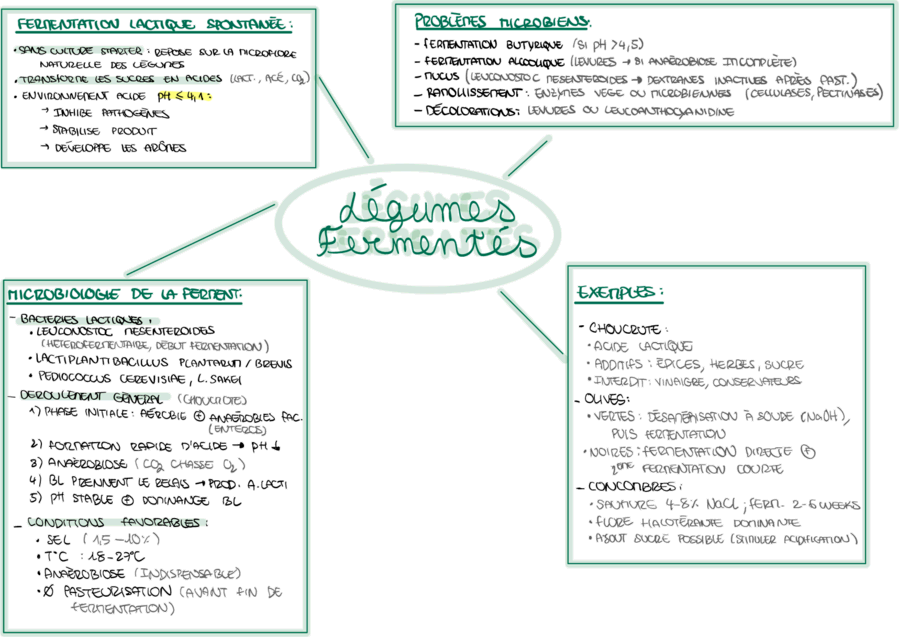 FERMENTATION LACTIQUE SPONTANÉE :
• SANS CULTURE STARTER : REPOSE SUR LA MICROFLORE
NATURELLE DES LÉGUMES
• TRANSFORME LES SUCRES EN ACIDES (LACT., ACÉ, CO2)
• ENVIRONNEMENT ACIDE pH ≤ 4,1 :
→ INHIBE PATHOGÈNES
→ STABILISE PRODUIT
→ DÉVELOPPE LES ARÔMES
PROBLÈMES MICROBIENS.
- FERMENTATION BUTYRIQUE (SI pH > 4,5)
- FERMENTATION ALCOOLIQUE (LEVURES → SI ANAÉROBIOSE INCOMPLÈTE)
- MUCUS (LEUCONOSTOC MESENTEROIDES → DEXTRANES INACTIVES APRÈS PAST.)
- RAMOLLISSEMENT : ENZYMES VEGE OU MICROBIENNES (CELLULASES, PECTINASES)
- DÉCOLORATIONS : LEVURES OU LEUCOANTHOCYANIDINE
Légumes
Fermentés
MICROBIOLOGIE DE LA FERMENT.
- BACTERIES LACTIQUES :
• LEUCONOSTOC MESENTEROIDES
(HÉTÉROFERMENTAIRE, DÉBUT FERMENTATION)
• LACTIPLANTIBACILLUS PLANTARUM / BREVIS
• PEDIOCOCCUS CEREVISIAE, L. SAKEI
- DEROULEMENT GÉNÉRAL (CHOUCROTE)
1) PHASE INITIALE : AÉROBIE ⊕ ANAÉROBIES FAC.
(ENTEROS)
2) FORMATION RAPIDE D'ACIDE → pH ↓
3) ANAÉROBIOSE (CO2 CHASSE O2)
4) BL PRENNENT LE RELAIS → PROD. A. LACTI
5) pH STABLE ⊕ DOMINANCE BL
- CONDITIONS FAVORABLES :
• SEL (1,5 – 10%)
• T°C : 18 – 27°C
• ANAÉROBIOSE (INDISPENSABLE)
• Ø PASTEURISATION (AVANT FIN DE
FERMENTATION)
EXEMPLES :
- CHOUCROUTE :
• ACIDE LACTIQUE
• ADDITIFS : ÉPICES, HERBES, SUCRE
• INTERDIT : VINAIGRE, CONSERVATEURS
- OLIVES :
• VERTES : DÉSAMÉRISATION À SOUDE (NaOH),
PUIS FERMENTATION
• NOIRES : FERMENTATION DIRECTE ⊕
2ème FERMENTATION COURTE
- CONCOMBRES :
• SAUMURE 4-8% NaCl ; FERM. 2-6 WEEKS
• FLORE HALOTÉRANTE DOMINANTE
• AJOUT SUCRE POSSIBLE (STIMULER ACIDIFICATION)